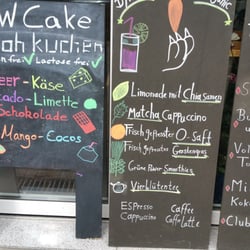 W Cake
oh kuchen
nfrei Lactose frei
eer-Käse
ado-Limette
Schokolade
Mango-Cocos
Limonade mit Chia Samen
Matcha Cappuccino
Fisch gepresster O. Saft
Fisch gepresster
Grüne Power Smoothies
Vierblütentee
ESPresso Caffee
Cappuccino Caffe Latte
Vol
To
Mi
Koku
Club